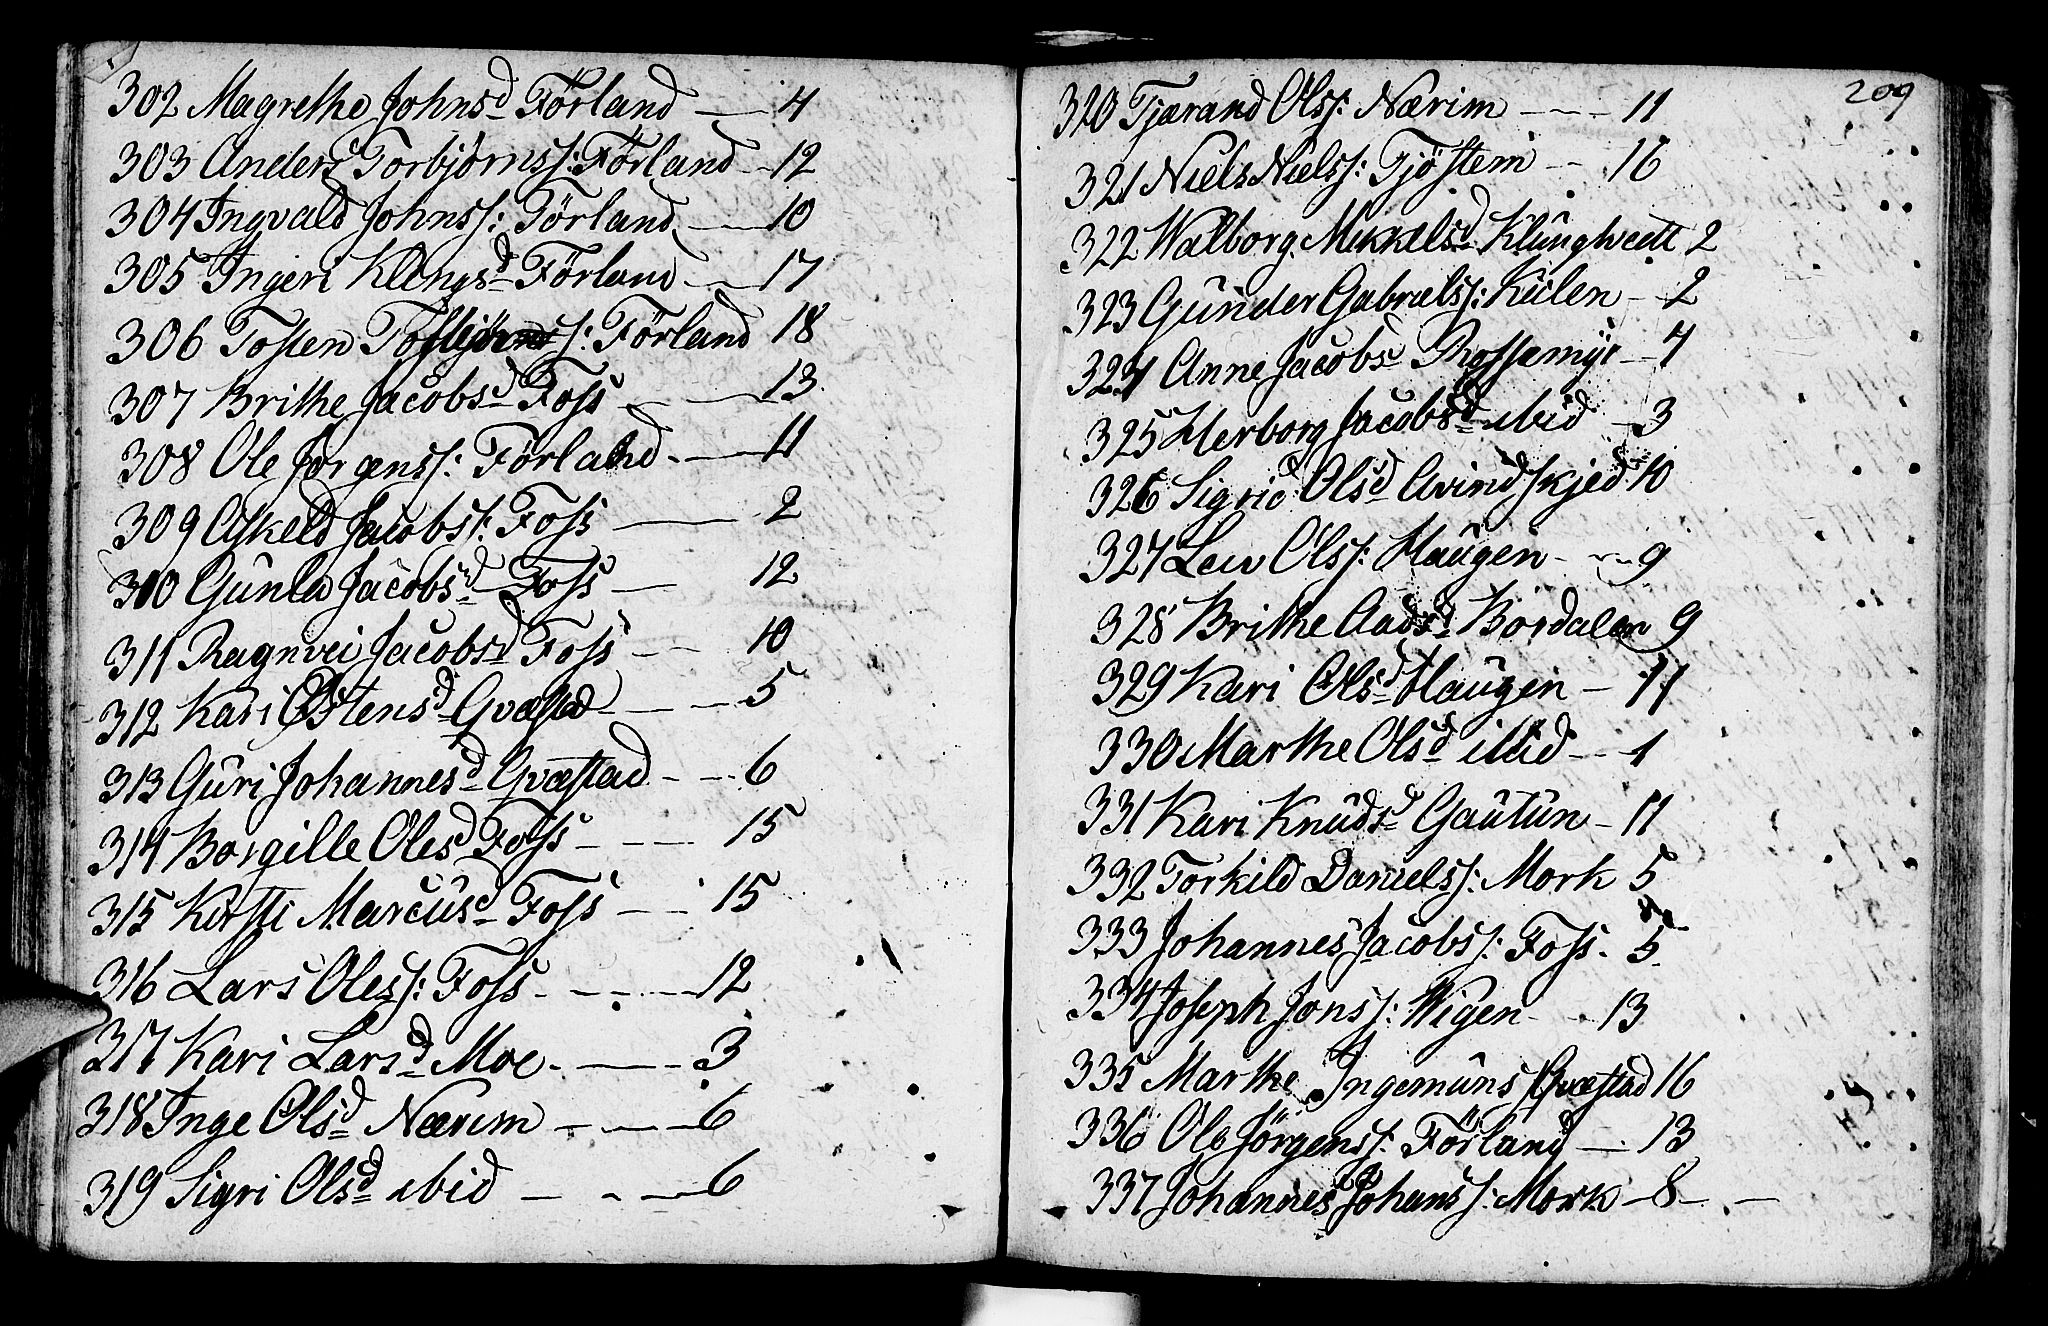 302 Magrethe Johnsd Förland — 4
303 Anders Torbjörnss: Förland - 12
304 Ingvald Johnss: Förland — 10
305 Ingeri Klengsd Förland — 17
306 Tosten s: Förland 18
307 Brithe Jacobsd Foss — 13
308 Ole Jörgenss: Förland — 11
309 Askeld Jacobss: Foss — 2
310 Gunla Jacobsd Foss — 12
311 Ragnvei Jacobsd Foss — 10
312 Kari Östensd Qvæstad — 5
313 Guri Johannesd Qvæstad — 6
314 Borgille Olesd Foss — 15
315 Kirsti Marcusd Foss — 15
316 Lars Oless: Foss — 12
317 Kari Larsd Moe — 3
318 Inge Olsd Nærim — 6
319 Sigri Olsd ibid — 6
209
320 Tjærand Olss: Nærim — 11
321 Niels Nielss: Tjöstem — 16
322 Walborg Mikkelsd Klungtvedt 2
323 Gunder Gabrielss: Kulen — 2
324 Anne Jacobsd Rossemyr — 4
325 Herborg Jacobsd ibid — 3
326 Sigrid Olsd Qvindskjed 10
327 Leiv Olss: Haugen — 9
328 Brithe Aadsd Bördalen 9
329 Kari Olsd Haugen — 11
330 Marthe Olsd ibid — 1
331 Kari Knudsd Gautun — 11
332 Torkild Danielss: Mork 5
333 Johannes Jacobss: Foss. 5
334 Joseph Jonss: Wigen — 13
335 Marthe Ingemuns Qvæstad 16
336 Ole Jörgenss: Förland — 13
337 Johannes Johanss: Mork — 8 —